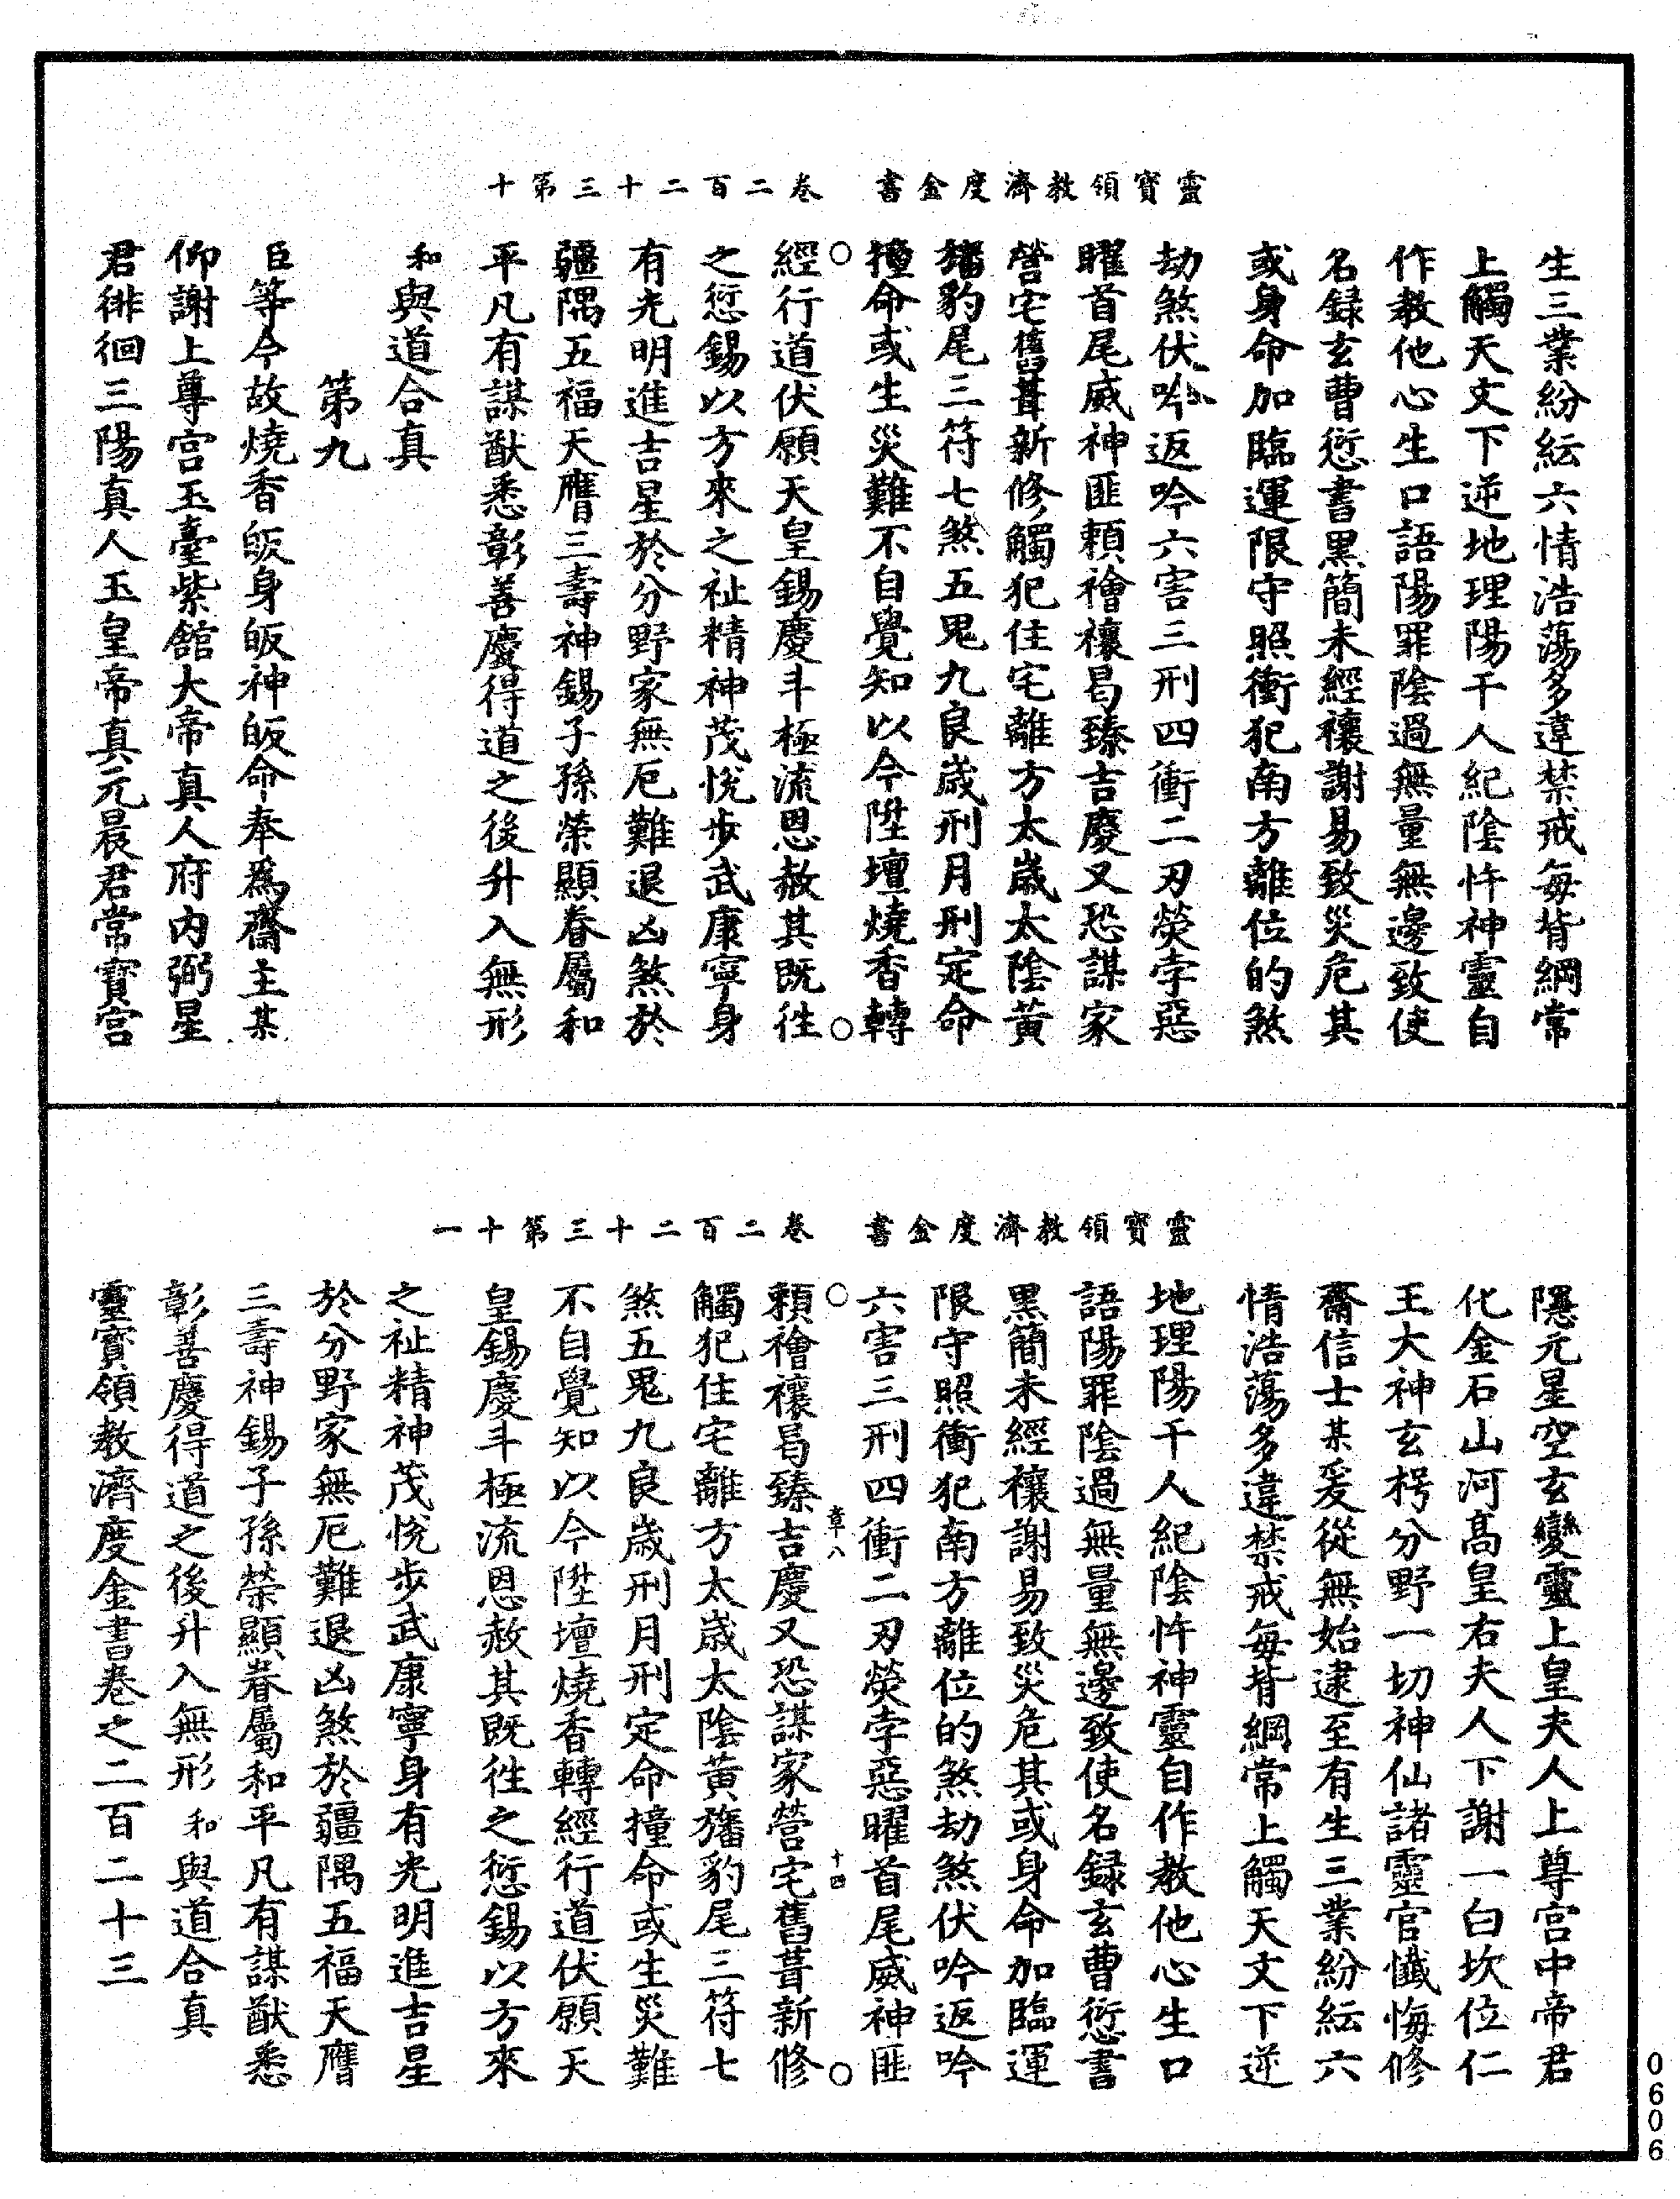 靈寶領教濟度金書 卷二百二十三第十
生三業紛紜六情浩蕩多違禁戒每背綱常
上觸天文下逆地理陽干人紀陰忤神靈自
作教他心生口語陽罪陰過無量無邊致使
名録玄曹愆書黑簡未經禳謝易致災危其
或身命加臨運限守照衝犯南方離位的煞
劫煞伏吟返吟六害三刑四衝二刃熒孛惡
曜首尾威神匪頼禬禳曷臻吉慶又恐謀家
營宅舊葺新修觸犯住宅離方太歲太陰黃
旛豹尾三符七煞五鬼九良歲刑月刑定命
撞命或生災難不自覺知以今陞壇燒香轉
經行道伏願天皇錫慶斗極流恩赦其既往
之愆錫以方來之祉精神茂悅步武康寧身
有光明進吉星於分野家無厄難退凶煞於
疆隅五福天膺三壽神錫子孫榮顯眷屬和
平凡有謀猷悉彰善慶得道之後升入無形
和與道合真
第九
臣等今故燒香皈身皈神皈命奉為齋主某
仰謝上尊宮玉臺紫館大帝真人府內弼星
君徘徊三陽真人玉皇帝真元晨君常寶宮
靈寶領教濟度金書 卷二百二十三第十一
隱元星空玄變靈上皇夫人上尊宮中帝君
化金石山河高皇右夫人下謝一白坎位仁
王大神玄枵分野一切神仙諸靈官懺悔修
齋信士某爰從無始逮至有生三業紛紜六
情浩蕩多違禁戒每背綱常上觸天文下逆
地理陽干人紀陰忤神靈自作教他心生口
語陽罪陰過無量無邊致使名録玄曹愆書
黑簡未經禳謝易致災危其或身命加臨運
限守照衝犯南方離位的煞劫煞伏吟返吟
六害三刑四衝二刃熒孛惡曜首尾威神匪
章八 十四
頼禬禳曷臻吉慶又恐謀家營宅舊葺新修
觸犯住宅離方太歲太陰黃旛豹尾三符七
煞五鬼九良歲刑月刑定命撞命或生災難
不自覺知以今陞壇燒香轉經行道伏願天
皇錫慶斗極流恩赦其既往之愆錫以方來
之祉精神茂悅步武康寧身有光明進吉星
於分野家無厄難退凶煞於疆隅五福天膺
三壽神錫子孫榮顯眷屬和平凡有謀猷悉
彰善慶得道之後升入無形 和與道合真
靈寶領教濟度金書卷之二百二十三
0606